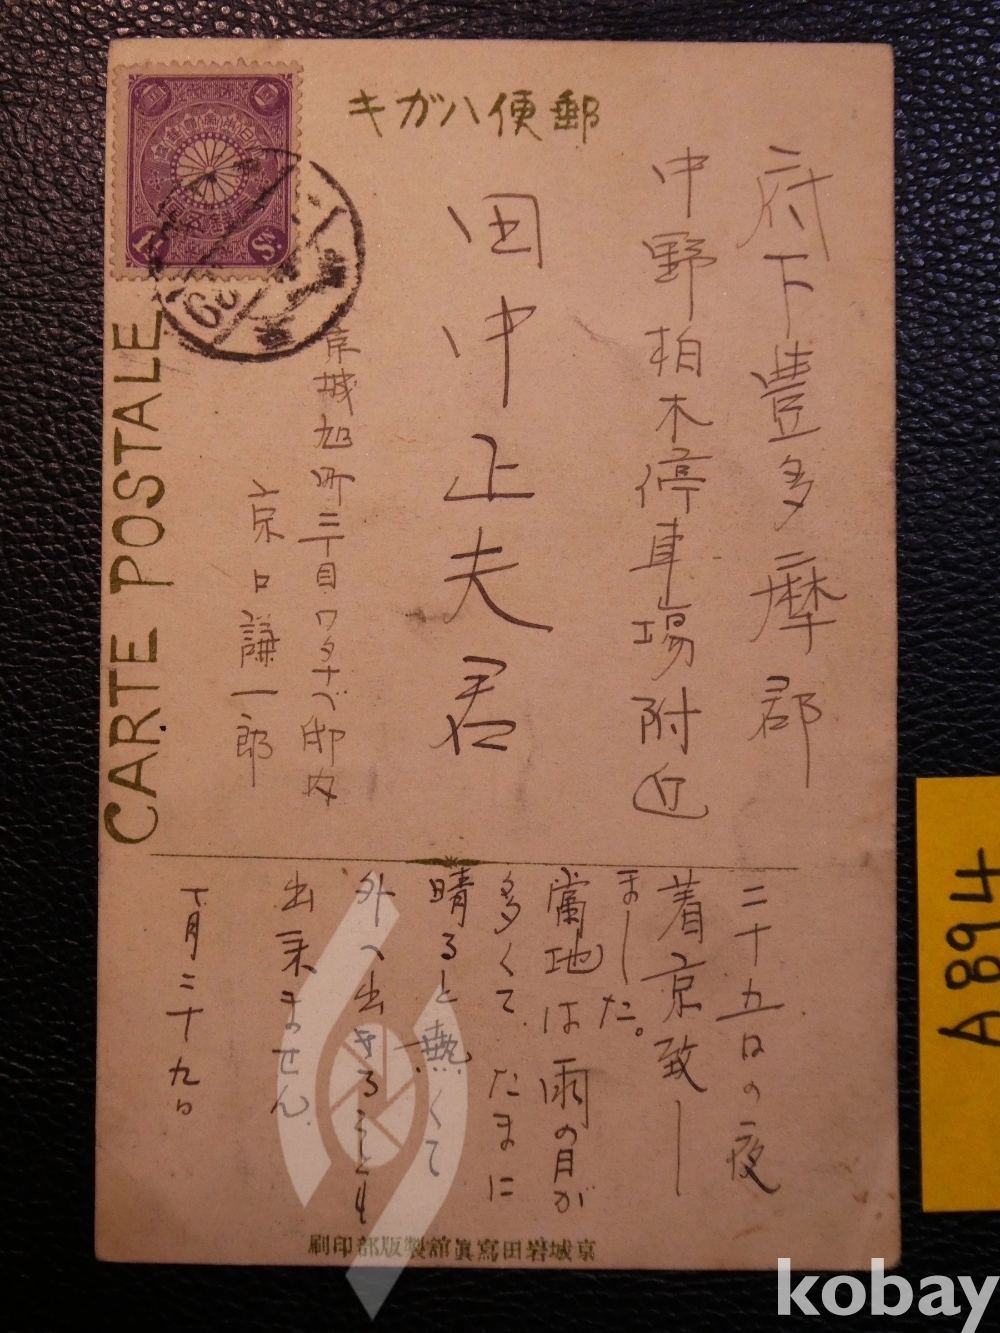 郵便ハガキ
CARTE POSTALE
府下豊多摩郡
中野柏木停車場附近
田中正夫君
京城旭町三丁目ワタナベ邸内
京口謙一郎
二十五日の夜
着京致し
ました。
當地は雨の日が
多くてたまに
晴ると熱くて
外へ出きることも
出来ません
丁月二十九日
京城岩田寫眞舘製版部印刷
A894
kobay